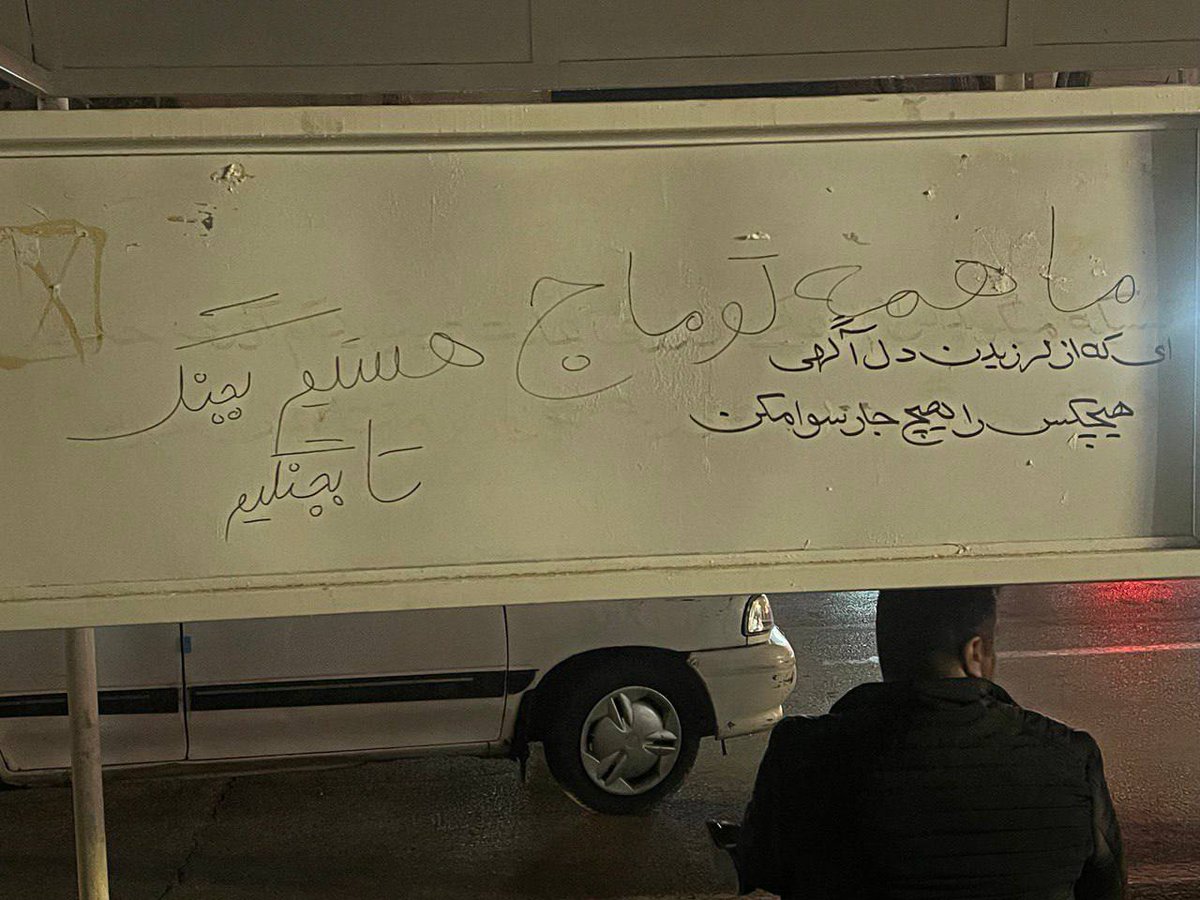 ما همه توماج هستیم بجنگ
تا بجنگیم
ای که از لرزیدن دل آگهی
هیچکس را هیچ جا رسوا مکن